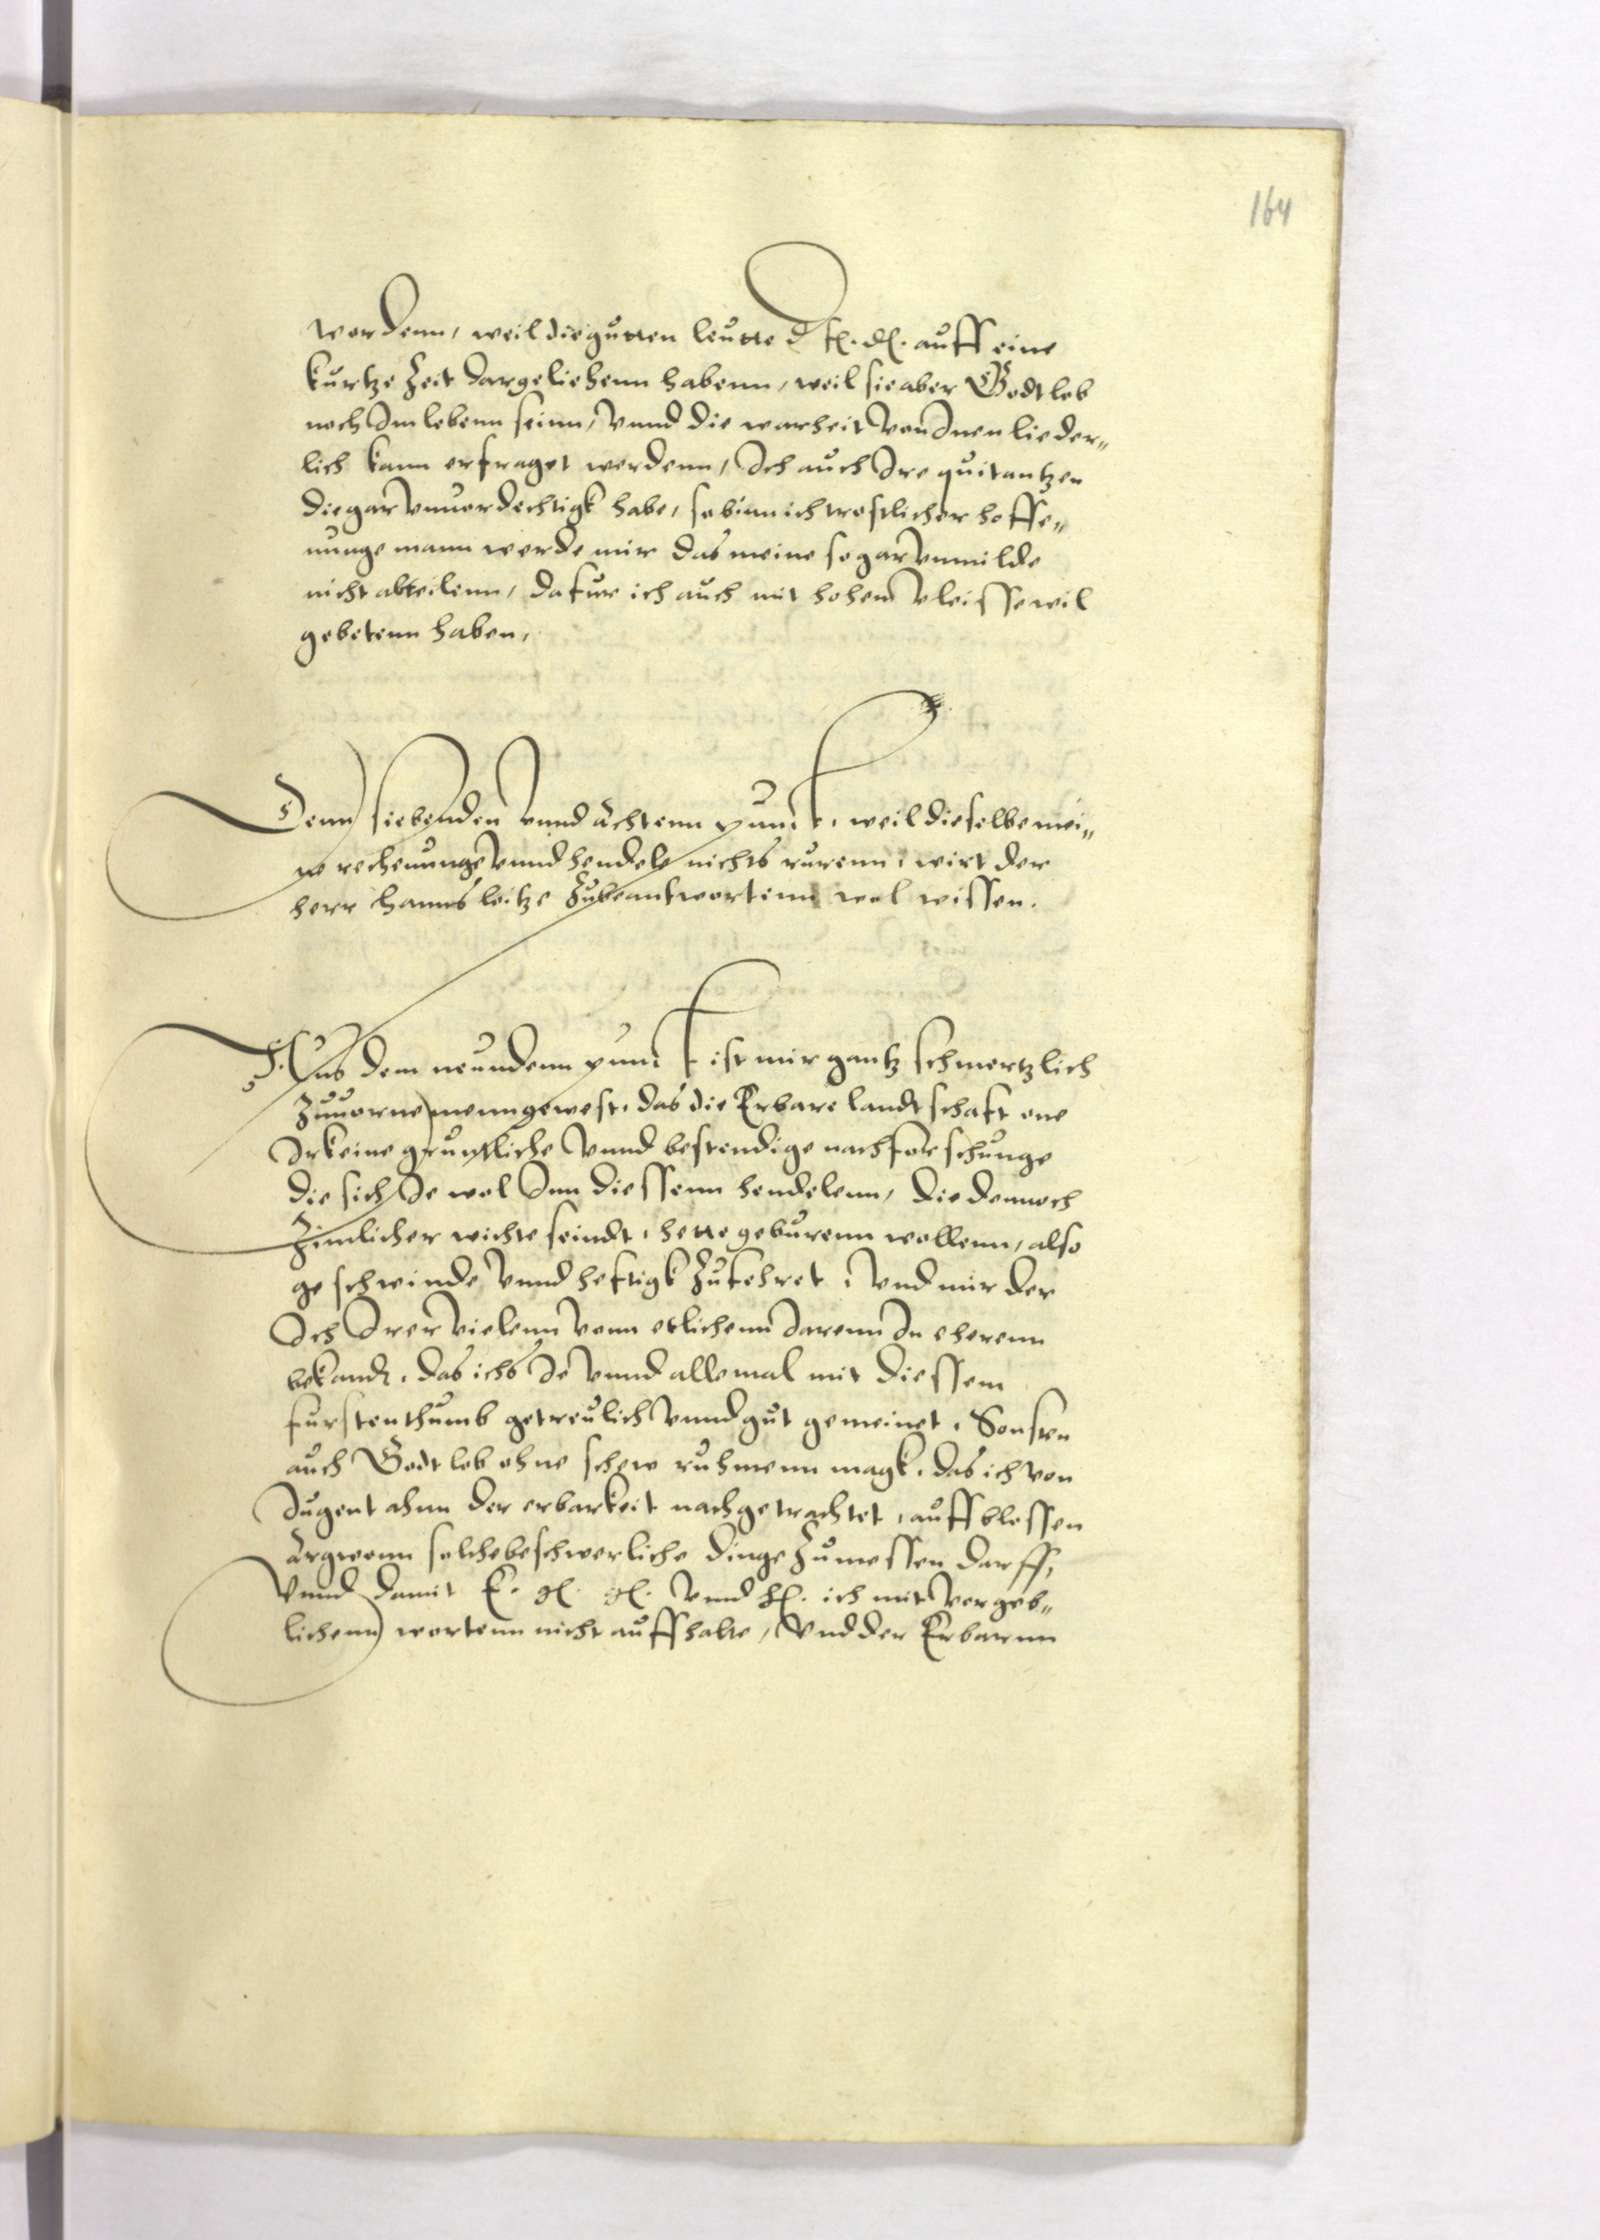 164
wordenn, weil die gutten leutte d. f. d. auff eine
kurtze Zeit dargeliehenn habenn, weil sie aber Godt lob
noch Im lebenn seinn, Vnnd die warheit von Inen lieder„
lich kann erfraget werdenn, Ich auch Ire quitantzen
die gar vnuordechtigk habe, so binn ich trostlicher hoffe„
nunge mann werde mir das meine so gar vnmilde
nicht abteilenn, dafure ich auch mit hohem vleisse wil
gebetenn haben,
Denn siebenden vnnd achtenn punct, weil dieselbe mei„
ne rechenunge vnnd hendele nichts rurenn, wirt der
herr hanns leitze Zubeantwortenn wol wissen.
Aus dem neundenn punct ist mir gantz schmertzlich
Zuuornemenn gewest, das die Erbare landtschaft one
Irkeine gruntliche vnnd bestendige nachforschunge
die sich Je wol Inn diessenn hendelenn, die dennoch
Zimlicher wichte seindt, hette geburenn wollenn, also
geschwinde vnnd heftigk Zufehret, vnd mir der
Ich Irer vielenn vonn etlichenn Jarenn In eherenn
bekandt, das ichs Je vnnd allemal mit diessem
furstenthumb getreulich vnnd gut gemeinet, Sonsten
auch Godt lob ohne schew ruhmenn magk, das ich von
Jugent ahnn der erbarkeit nachgetrachtet, auff blossen
argwonn solche beschwerliche dinge Zumessen darff,
Vnnd damit E. g. g. vnnd h. ich mit vorgeb„
lichenn wortenn nicht auffhalte, Vnd der Erbarnn